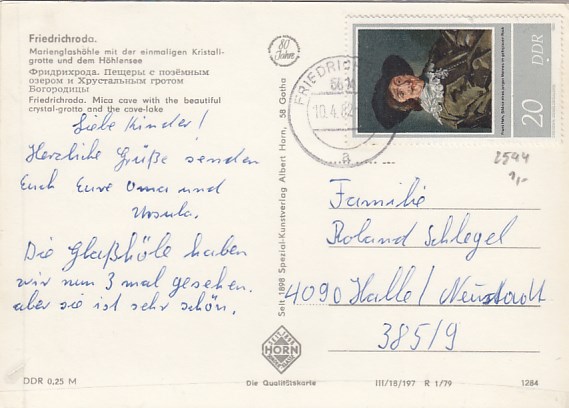 Friedrichroda.
Marienglashöhle mit der einmaligen Kristall-
grotte und dem Höhlensee
Фридрихрода. Пещеры с позёмным
озером и Хрустальным гротом
Богородицы
Friedrichroda. Mica cave with the beautiful
crystal-grotto and the cave-lake
Liebe Kinder!
Herzliche Grüße senden
Euch Eure Oma und
Ursula.
Die Glaßhöle haben
wir nun 3 mal gesehen.
aber sie ist sehr schön.
DDR 0,25 M
80
Jahre
Seit 1898 Spezial-Kunstverlag Albert Horn, 58 Gotha
HORN
Die Qualitätskarte
FRIEDRICH
10.4.82
a
DDR
20
2544
1,-
Familie
Roland Schlegel
4090 Halle/Neustadt
385/9
III/18/197 R 1/79
1284